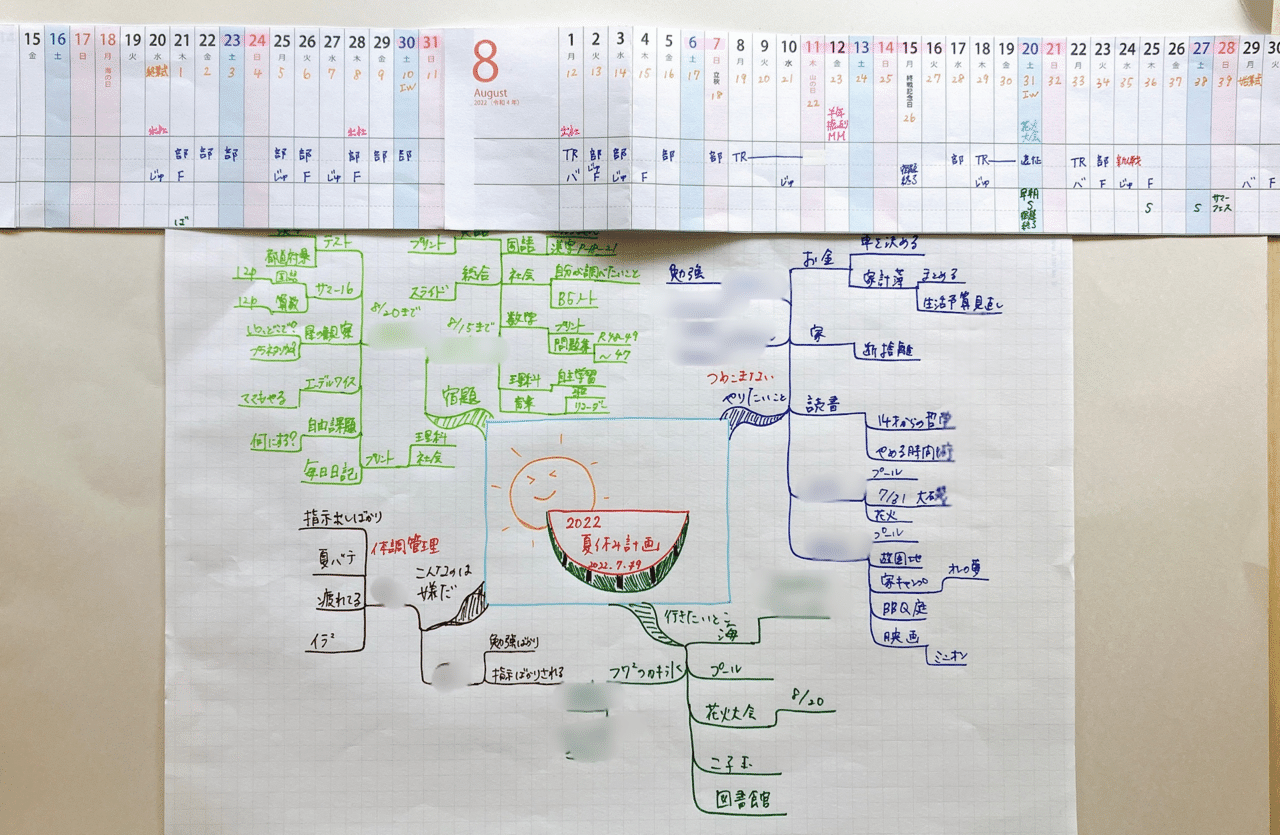 15 16 17 18 19 20 21 22 23 24 25 26 27 28 29 30 31
金 土 日 月 火 水 木 金 土 日 月 火 水 木 金 土 日
海の日
終業式 1 2 3 4 5 6 7 8 9 10 11
IW
出社 出社
部 部 部 部 部 部 部 部
じゅ F じゅ F じゅ F
ば
8
August
2022 (令和4年)
1 2 3 4 5 6 7 8 9 10 11 12 13 14 15 16 17 18 19 20 21 22 23 24 25 26 27 28 29 30
月 火 水 木 金 土 日 月 火 水 木 金 土 日 月 火 水 木 金 土 日 月 火 水 木 金 土 日 月 火
立秋 山の日 終戦記念日
12 13 14 15 16 17 18 19 20 21 22 23 24 25 26 27 28 29 30 31 32 33 34 35 36 37 38 39
IW
半年
振返り
MM
花火
大会
出社
TR 部 部 部 部 TR 部 TR 遠征 TR 部
バ じゅ F じゅ F じゅ 宿題終了 じゅ バ F じゅ F バ F
早朝
S
S S サマーフェス
宿題
8/20まで
テスト
都道府県
サマー16
国語
12p
算数
12p
星の観察
プラネタリウム?
エーデルワイス
ててもやる
自由課題
何にする?
毎日日記
プリント
理科
社会
8/15まで
プリント
国語
漢字
総合
スライド
社会
自分が調べたいこと
B5ノート
数学
プリント
問題集
P48-49
~47
理科
自主学習
音楽
リコーダー
つめこまない
やりたいこと
勉強
お金
車を決める
家計簿
まとめる
生活予算見直し
家
断捨離
読書
14才からの哲学
やめる時間術
プール
7/31
花火
プール
遊園地
家キャンプ
オレの夢
BBQ庭
映画
ミニオン
2022
夏休み計画
体調管理
こんなのは
嫌だ
指示出しばかり
夏バテ
疲れてる
イライラ
勉強ばかり
指示ばかりされる
行きたいとこ
海
プール
花火大会
8/20
二子玉
図書館